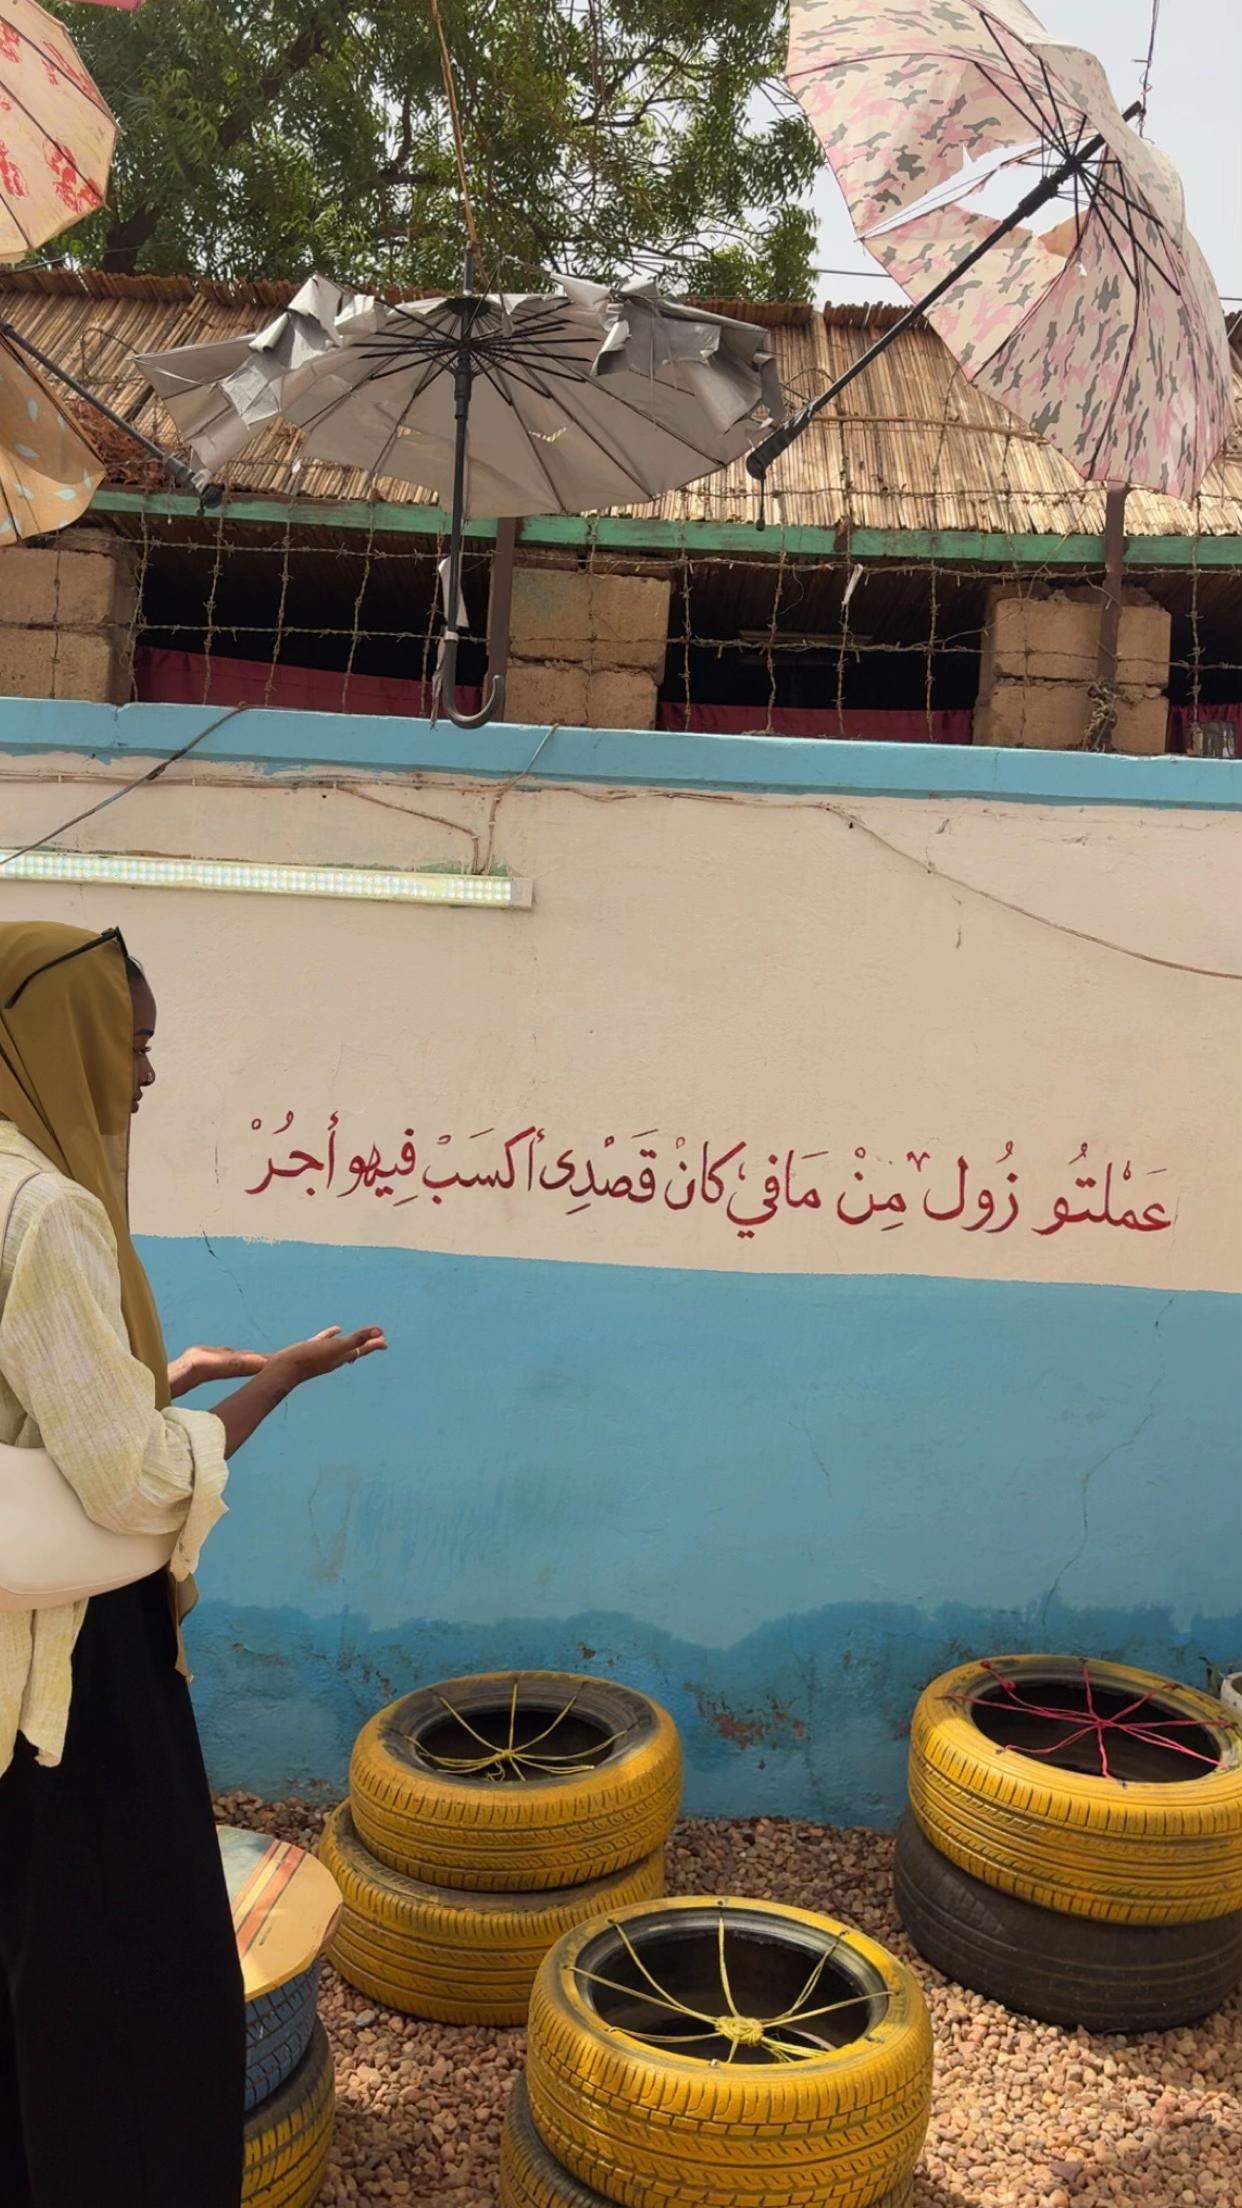 عَمْلتُو زُول مِنْ مَافي كانْ قَصْدِى أكسَبْ فِيهو أجُرْ